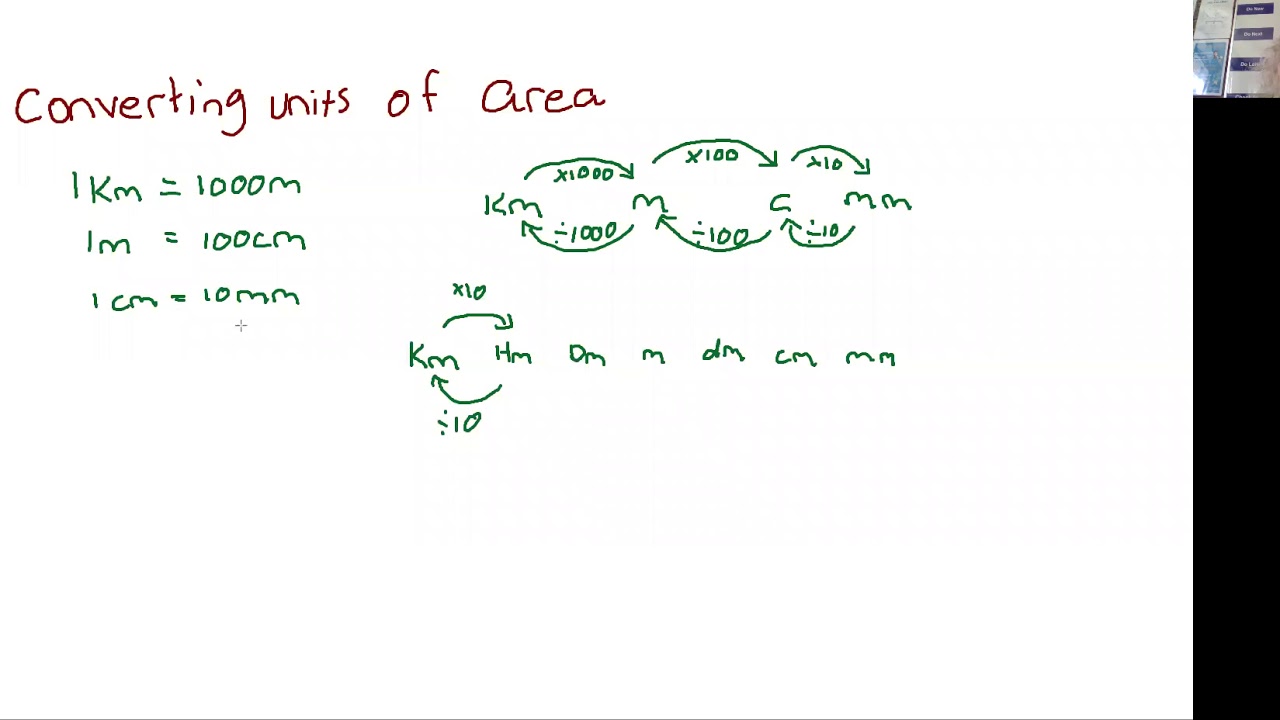 Converting units of area
1 Km = 1000m
1m = 100cm
1 cm = 10mm
×1000 ×100 ×10
Km m c mm
÷1000 ÷100 ÷10
×10
Km Hm Dm m dm cm mm
÷10
Do Now
Do Next